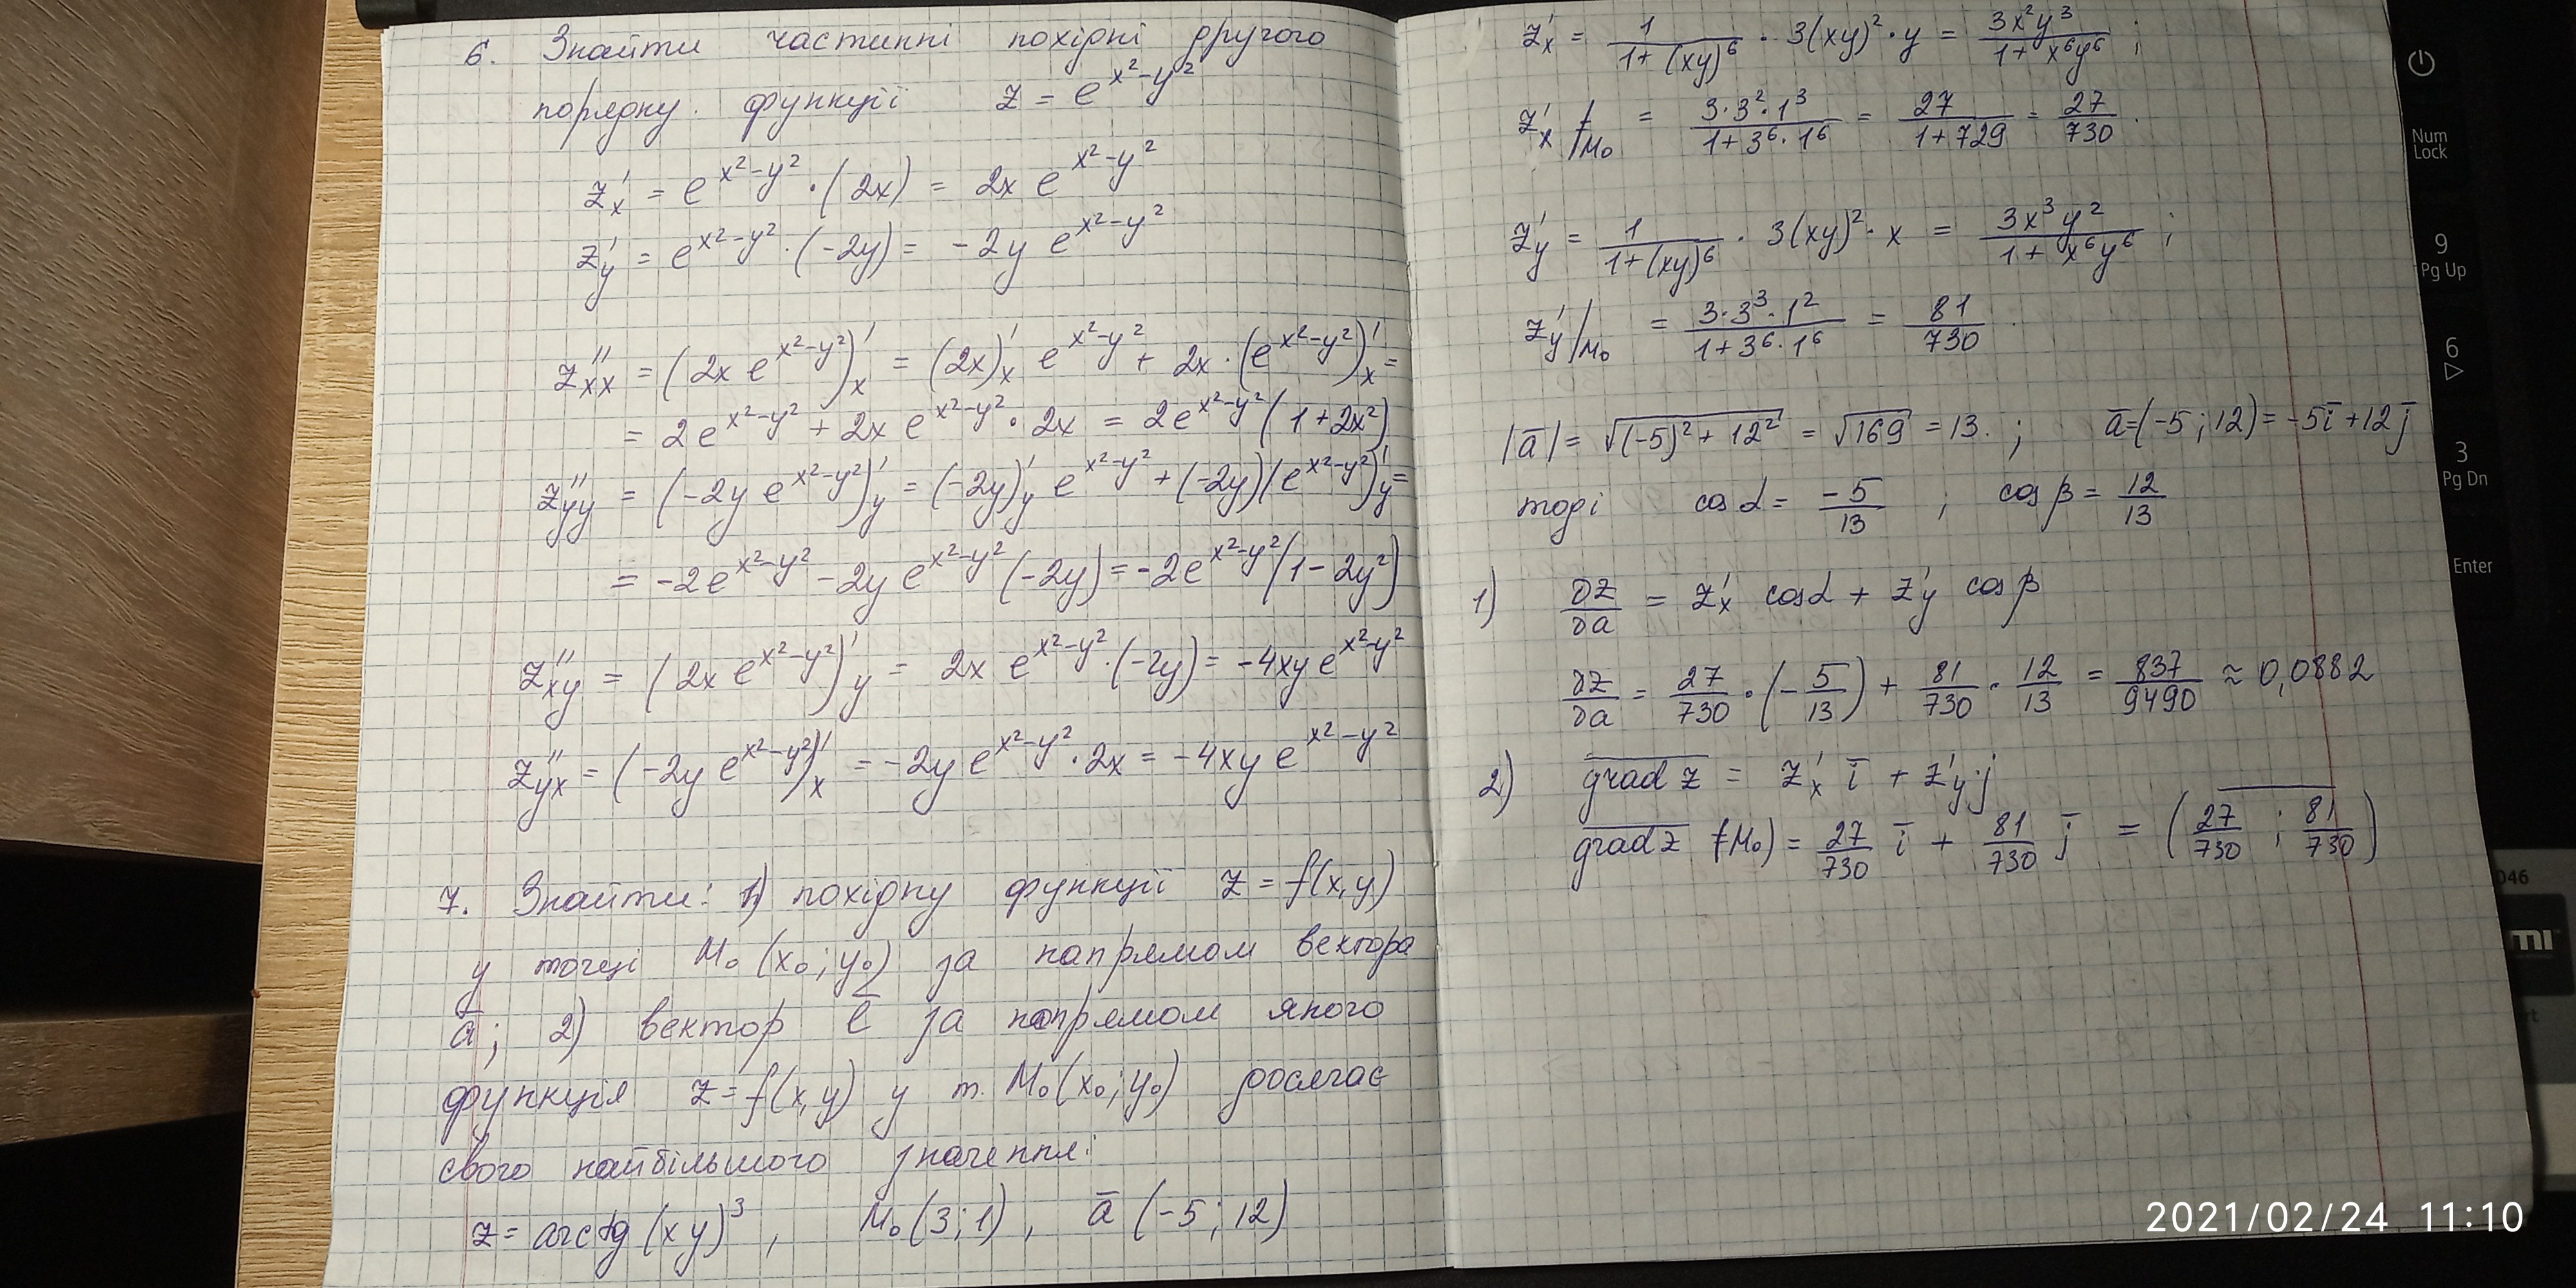 6. Знайти частинні похідні другого
порядку функції z = e^{x²-y²}
z'_x = e^{x²-y²} · (2x) = 2x e^{x²-y²}
z'_y = e^{x²-y²} · (-2y) = -2y e^{x²-y²}
z''_{xx} = (2x e^{x²-y²})'_x = (2x)'_x e^{x²-y²} + 2x · (e^{x²-y²})'_x =
= 2e^{x²-y²} + 2x e^{x²-y²} · 2x = 2e^{x²-y²} (1+2x²)
z''_{yy} = (-2y e^{x²-y²})'_y = (-2y)'_y e^{x²-y²} + (-2y)(e^{x²-y²})'_y =
= -2e^{x²-y²} - 2y e^{x²-y²} (-2y) = -2e^{x²-y²} (1-2y²)
z''_{xy} = (2x e^{x²-y²})'_y = 2x e^{x²-y²} · (-2y) = -4xy e^{x²-y²}
z''_{yx} = (-2y e^{x²-y²})'_x = -2y e^{x²-y²} · 2x = -4xy e^{x²-y²}
7. Знайти: 1) похідну функції z = f(x,y)
у точці M₀ (x₀; y₀) за напрямом вектора
a̅; 2) вектор e̅ за напрямом якого
функція z = f(x,y) у т. M₀(x₀; y₀) досягає
свого найбільшого значення:
z = arctg (xy)³, M₀ (3; 1), a̅ (-5; 12)
z'_x = 1/(1+(xy)⁶) · 3(xy)² · y = 3x²y³/(1+x⁶y⁶) ;
z'_x |_{M₀} = 3·3²·1³/(1+3⁶·1⁶) = 27/(1+729) = 27/730.
z'_y = 1/(1+(xy)⁶) · 3(xy)² · x = 3x³y²/(1+x⁶y⁶) ;
z'_y |_{M₀} = 3·3³·1²/(1+3⁶·1⁶) = 81/730.
|a̅| = √((-5)²+12²) = √169 = 13. ; a̅=(-5; 12) = -5i̅ + 12j̅
тоді cos α = -5/13 ; cos β = 12/13
1) ∂z/∂a = z'_x cos α + z'_y cos β
∂z/∂a = 27/730 · (-5/13) + 81/730 · 12/13 = 837/9490 ≈ 0,0882
2) grad z = z'_x i̅ + z'_y j
grad z (M₀) = 27/730 i̅ + 81/730 j̅ = (27/730 ; 81/730)
Num
Lock
9
Pg Up
6
3
Pg Dn
Enter
046
mi
2021/02/24 11:10